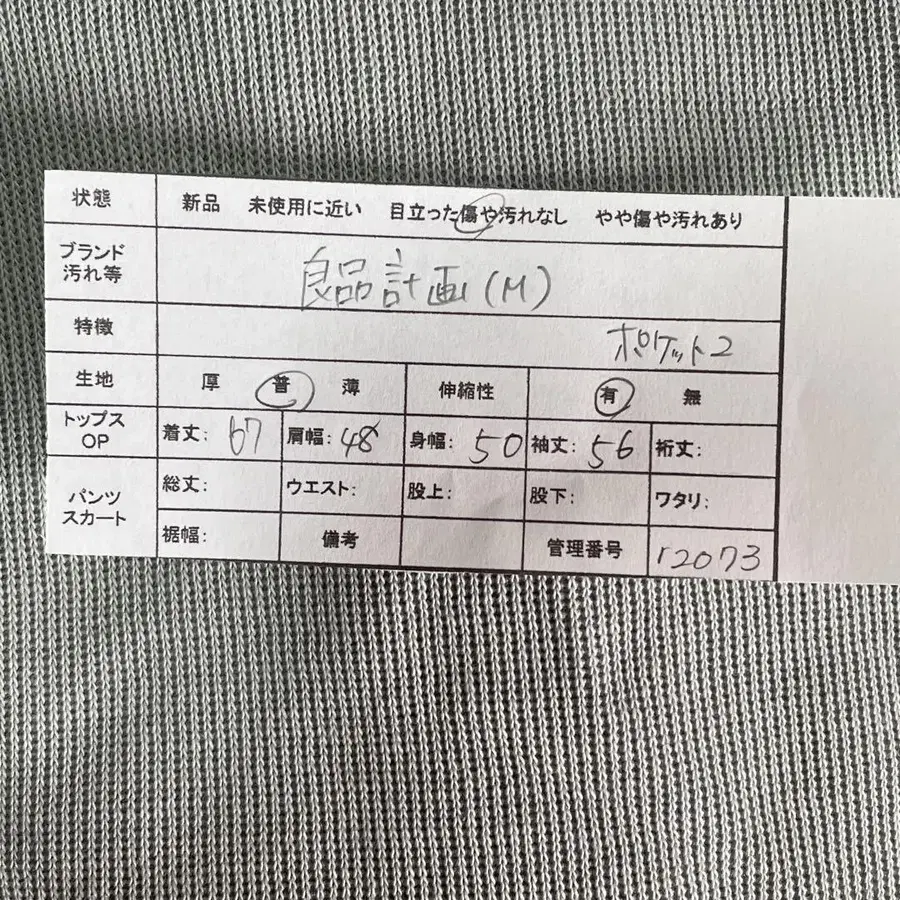 状態 新品 未使用に近い 目立った傷や汚れなし やや傷や汚れあり
ブランド
汚れ等 良品計画(M)
特徴 ポケット2
生地 厚 普 薄 伸縮性 有 無
トップス
OP 着丈: 67 肩幅: 48 身幅: 50 袖丈: 56 裄丈:
パンツ
スカート 総丈: ウエスト: 股上: 股下: ワタリ:
裾幅: 備考 管理番号 r2073